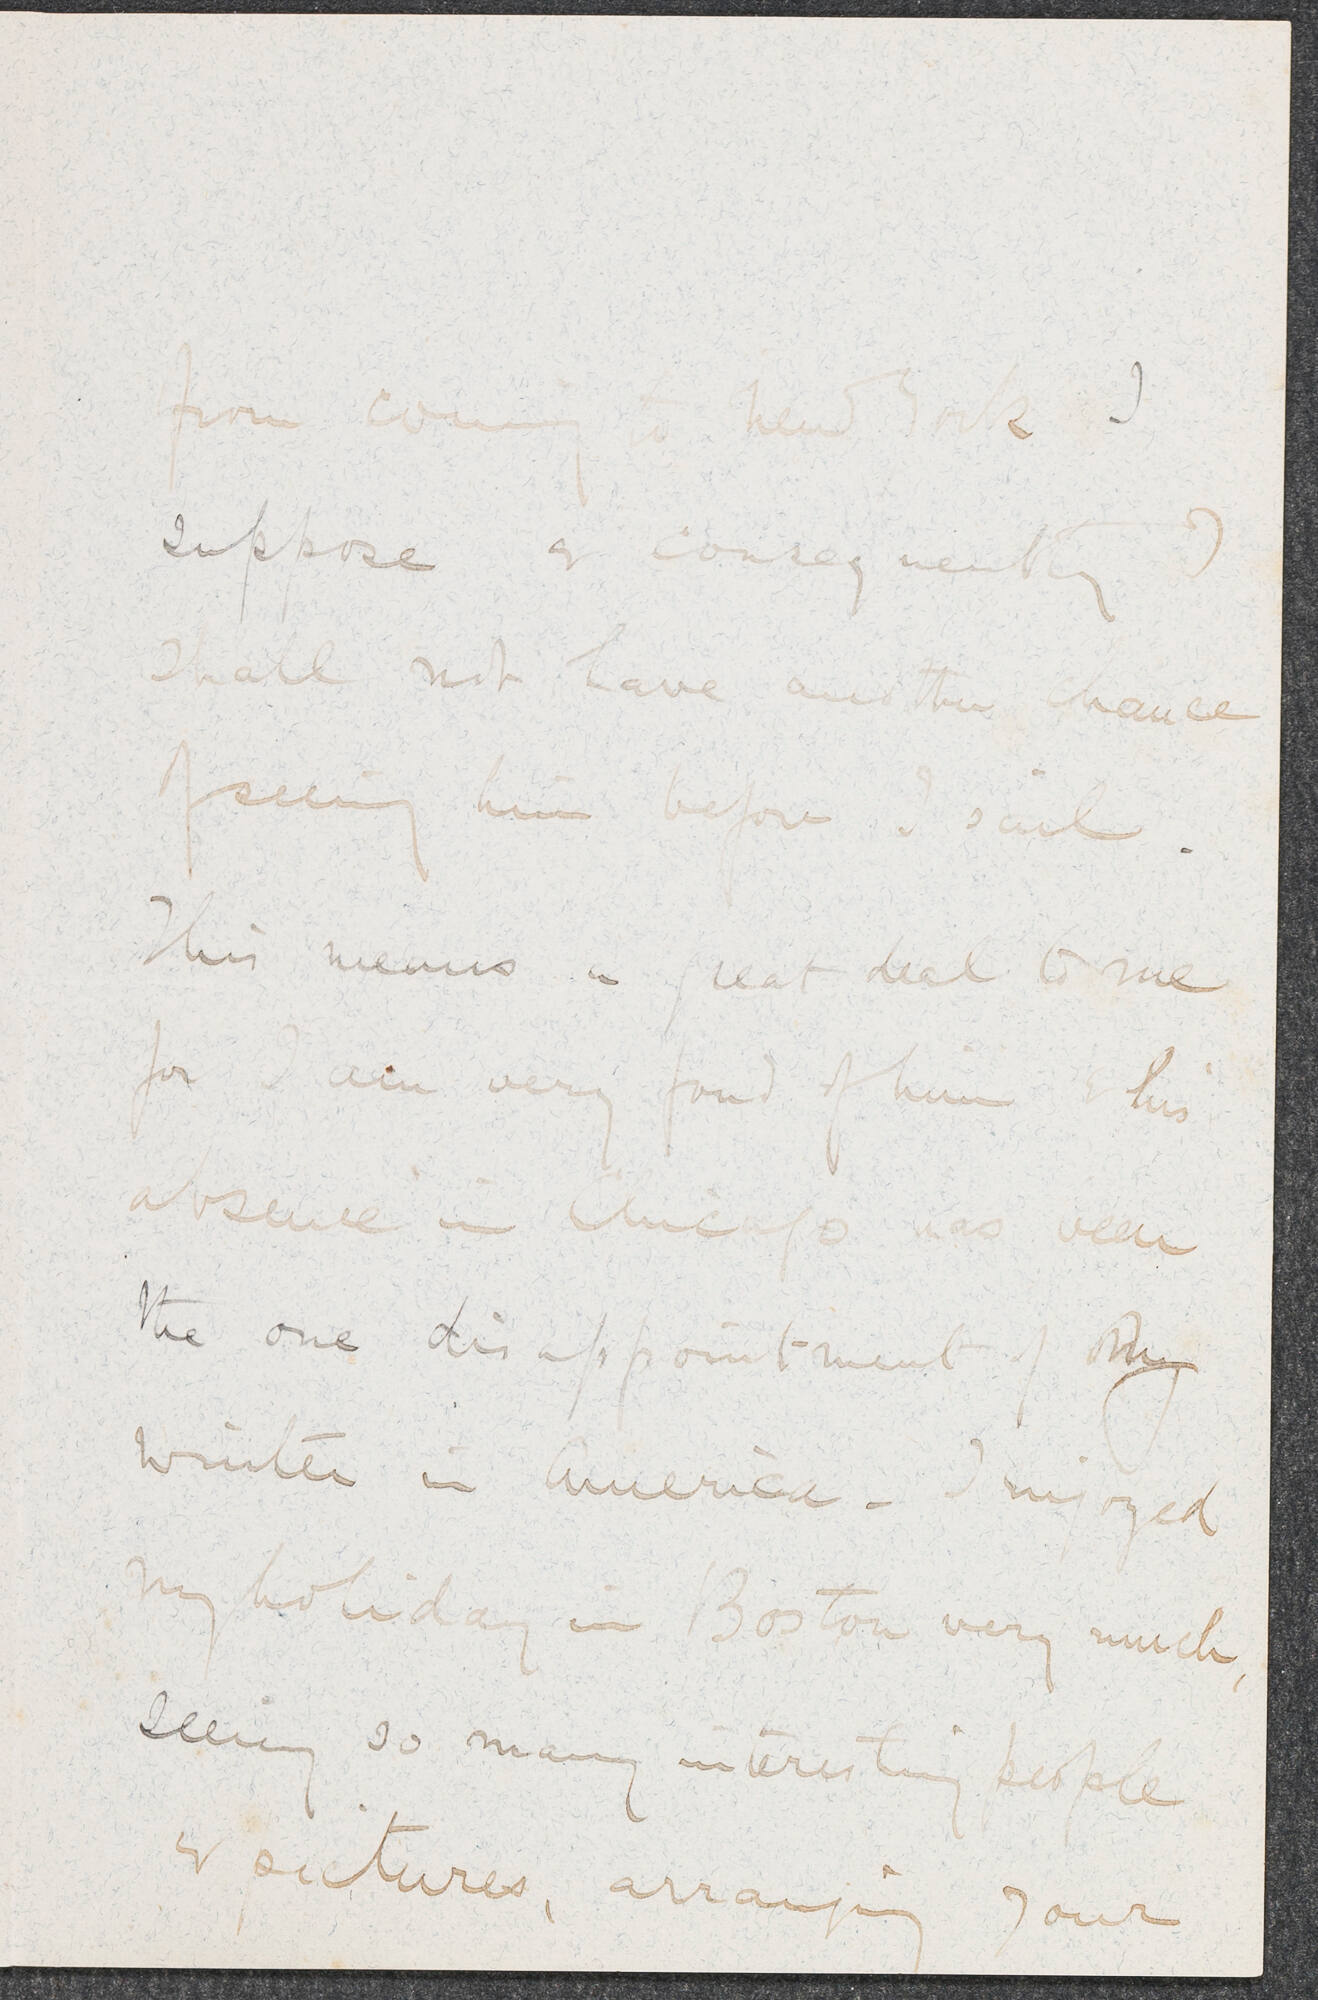 from coming to New York I
suppose & consequently I
shall not have another chance
of seeing him before I sail.
This means a great deal to me
for I am very fond of him & his
absence in Chicago was
the one disappointment of my
winter in America - I enjoyed
my holiday in Boston very much,
seeing so many interesting people
& pictures, arranging your